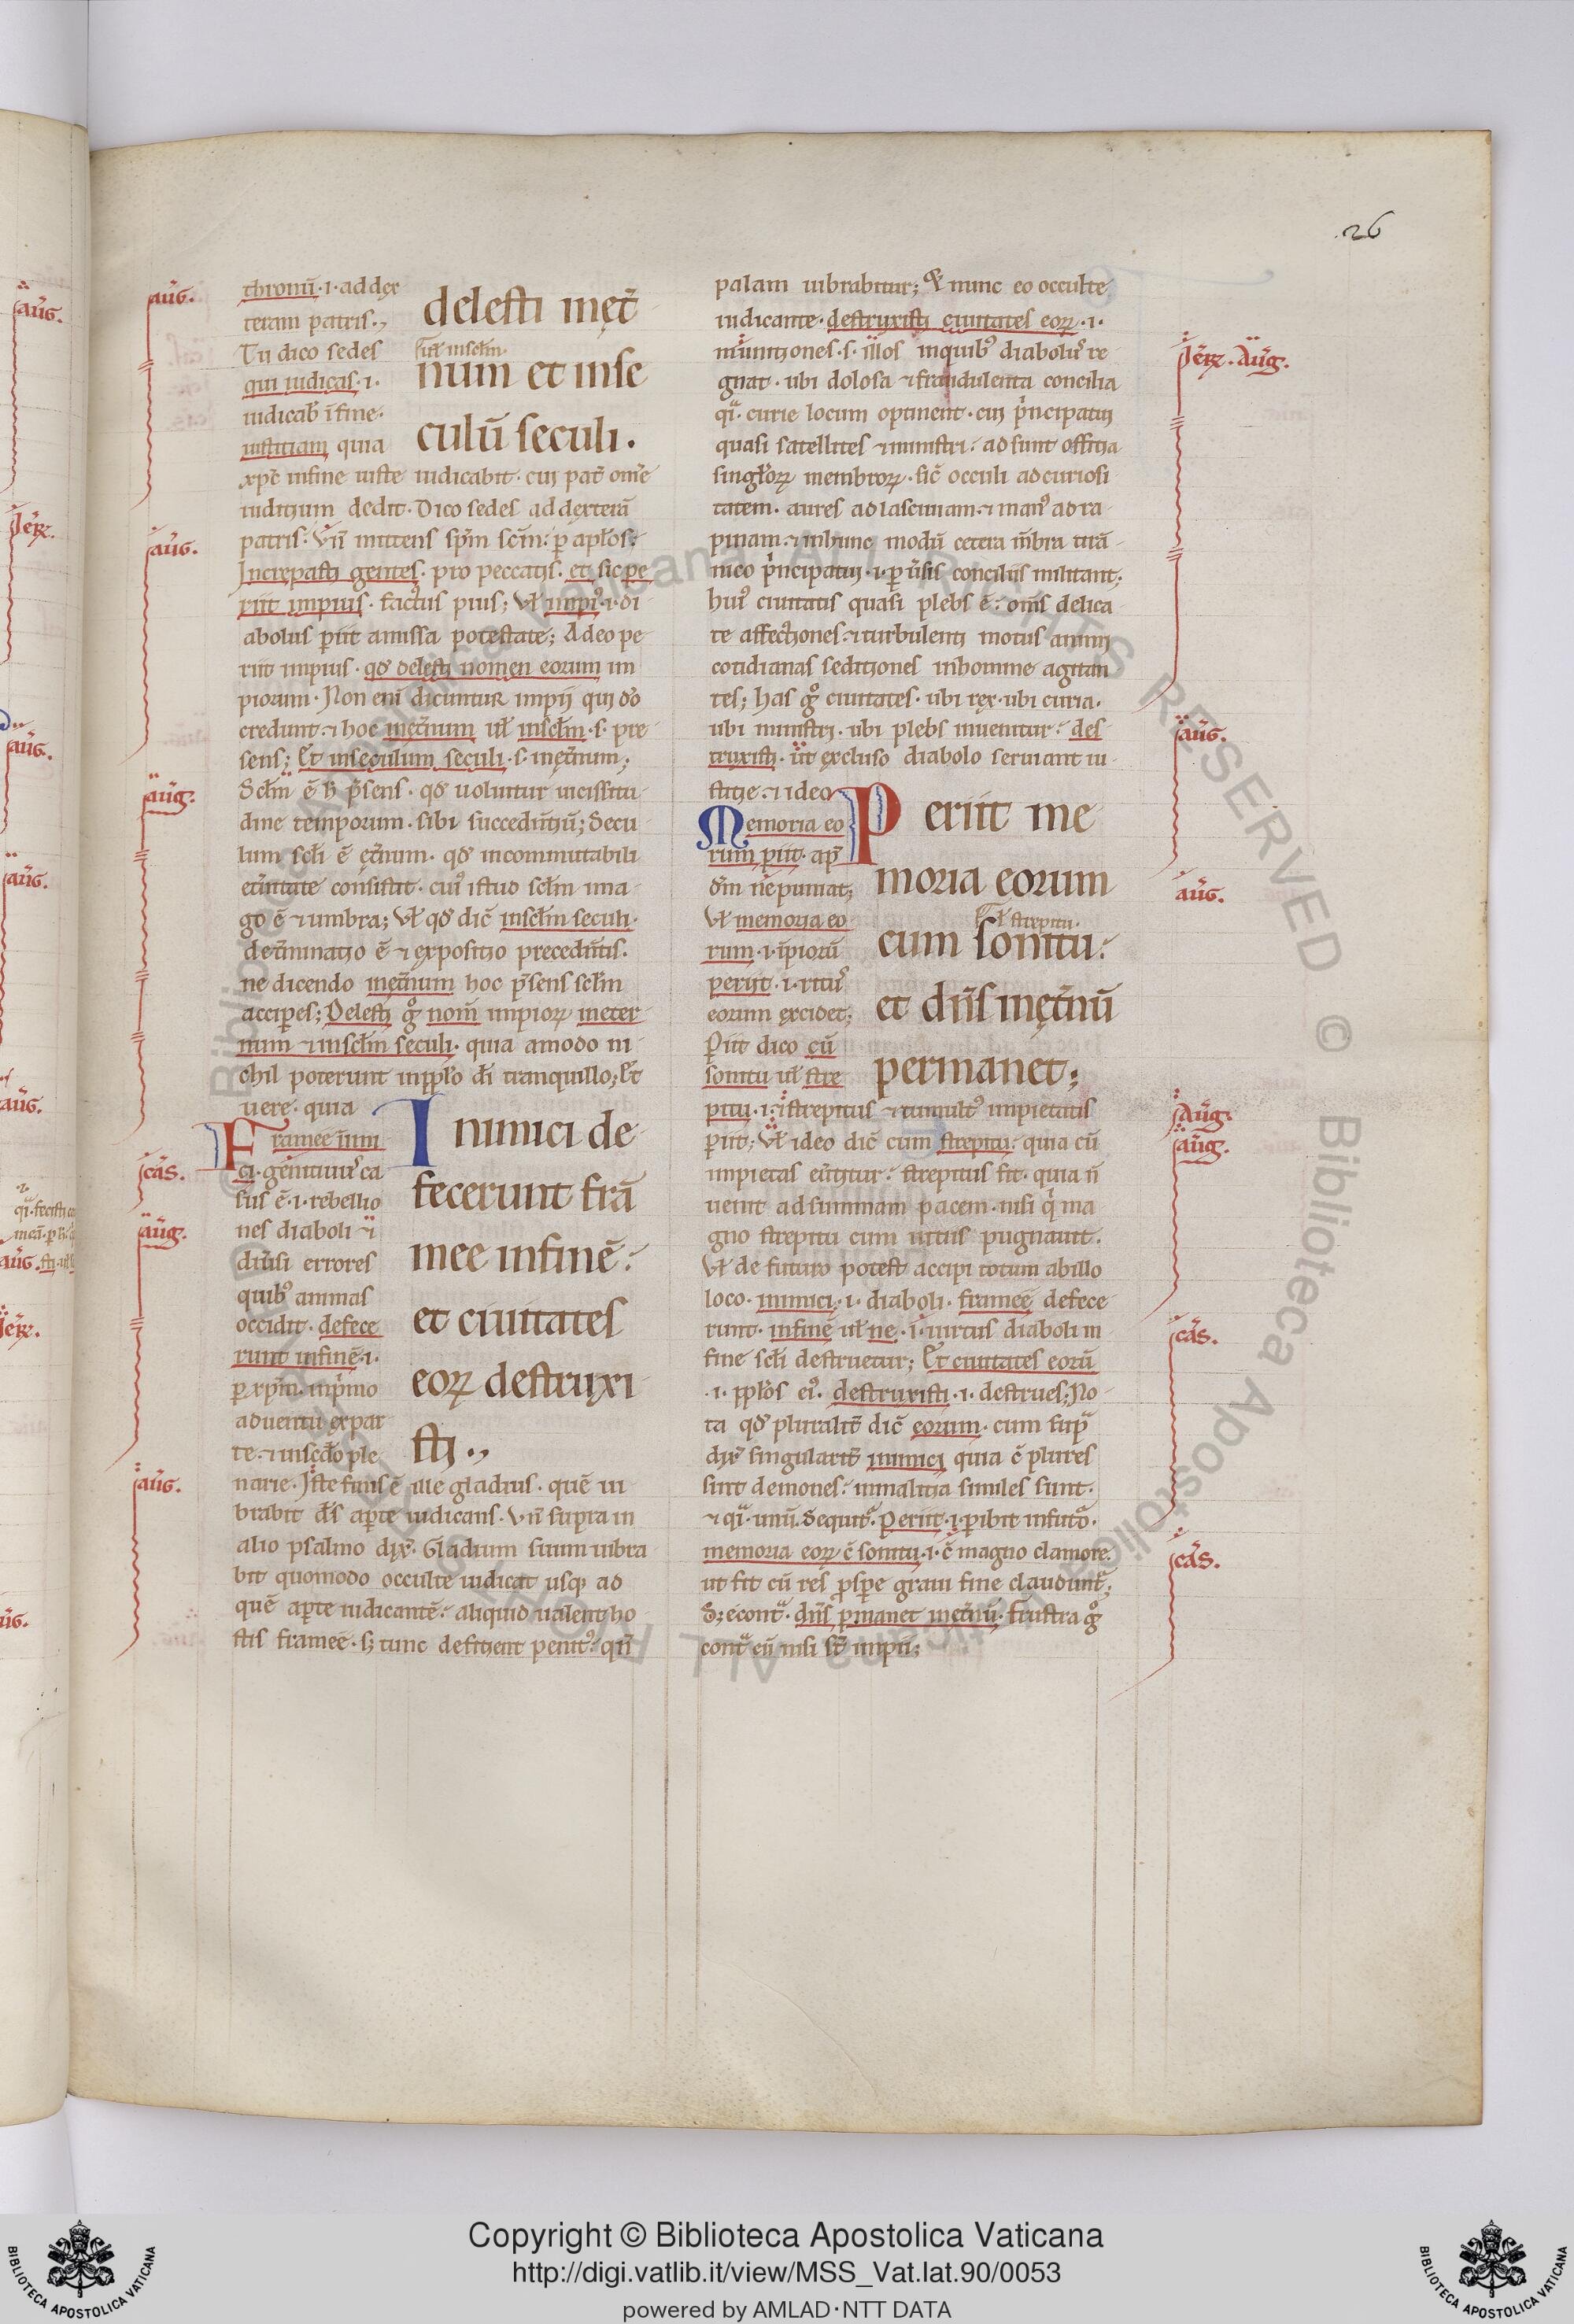 .26
aūg.
thronū·i·ad dex
teram patris.,
Tu dico sedes
qui iudicas·i·
iudicab̄ ī fine·
iustitiam quia
delesti inęt̄
ł in sclm̄·
num et in se
culū seculi.
xp̄c in fine iuste iudicabit· cui pat̄ om̄e
iuditium dedit· Dico sedes ad dexterā
patris· Vn̄ mittens sp̄m sc̄m· p apl̄os·
aūg.
Increpasti gentes· pro peccatis· et sic pe
riit impius· factus pius; Vł impi'·i·di
abolus periit amissa potestate; Adeo pe
riit impius· qd̄ delesti nomen eorum im
piorum· Non enī dicuntur impii qui dō
credunt ⁊ hoc inet̄num uł in sclm̄·s· pre
sens; Et in seculum seculi·s· inęt̄num;
aūg.
Sclm̄ ē h̄ p̄sens· qd̄ uoluitur uicissitu
dine temporum· sibi succedn̄tiū; Secu
lum scłi ē ęt̄num· qd̄ incommutabili
et̄nitate consistit· cui' istud sclm̄ ima
go ē ⁊ umbra; Vł qd̄ dic̄ in sclm̄ seculi·
det̄minatio ē ⁊ expositio precedn̄tis·
ne dicendo inęt̄num hoc p̄sens sclm̄
accip̄es; Delesti g° nom̄ impioꝝ in eter
num ⁊ in sclm̄ seculi· quia amodo ni
chil poterunt in pplo dī tranquillo; Et
uere· quia
Framee inimi
ci· genitiuus ca
cās.
sus ē·i· rebellio
nes diaboli ⁊
aūg.
diūsi errores
quib' animas
occidit· defece
runt in finē·i·
p xp̄m· in p̄mo
aduentu ex par
te· ⁊ in sc̄do ple
Inimici de
fecerunt frā
mee in finē·
et ciuitates
eoꝝ destruxi
sti.,
aūg.
narie· Iste finis ē ille gladius· quē ui
brabit d̄s ap̄te iudicans· Vn̄ supra in
alio psalmo dix̄· Gladium suum uibra
bit quomodo occulte iudicat usq; ad
quē ap̄te iudicantē· aliquid ualent ho
stis framee· s; tunc deficient penit'· qn̄
palam uibrabitur; Et nunc eo occulte
iudicante· destruxisti ciuitates eoꝝ·i·
Iēr. Aūg.
munitiones·s· illos in quib' diabolus re
gnat· ubi dolosa ⁊ fraudulenta concilia
qi· curie locum optinent· cui p̄ncipatui
quasi satellites ⁊ ministri· adsunt offitia
singłoꝝ membroꝝ· sic̄ occuli ad curiosi
tatem· aures ad lasciuiam· ⁊ man' ad ra
pinam· ⁊ in hunc modū cetera m̄bra tirā
nico p̄ncipatui·i· p ūsis conciliis militant;
hui' ciuitatis quasi plebs ē· om̄s delica
te affectiones· ⁊ turbulenti motus animi
cotidianas seditiones in homine agitan
tes; has g° ciuitates· ubi rex· ubi curia·
ubi ministri· ubi plebs inuenitur· des
aūg.
truxisti· ut excluso diabolo seruiant iu
stitie· ⁊ ideo
Memoria eo
rum piit· ap̄
dm̄ ne puniat;
aūg.
Vł memoria eo
rum·i·īpiorū
periit·i· ritus
eorum excidet;
Piit dico cū
sonitu uł stre
Periit me
moria eorum
ł strepitu·
cum sonitu·
et dn̄s inęt̄nū
permanet;
Aūg.
pitu·i· strepitus ⁊ tumult' impietatis
aūg.
piit; Vł ideo dic̄ cum strepitu· quia cū
impietas eūtitur· strepitus fit· quia n̄
uenit ad summam pacem· nisi q̄ ma
gno strepitu cum uitiis pugnauit·
Vł de futuro potest accipi totum ab illo
loco· inimici·i· diaboli· framee defece
cās.
runt· in finē uł ne·i· uirtus diaboli in
fine scłi destruetur; Et ciuitates eorū
·i· pplos ei'· destruxisti·i· destrues; No
ta qd̄ pluralit̄ dic̄ eorum· cum sup̄
dix̄ singularit̄ inimici quia c̄ plures
sint demones· in malitia similes sunt·
⁊ qi· unū· Sequit̄· Periit·i· pibit in futō·
cās.
memoria eoꝝ c̄ sonitu·i· c̄ magno clamore·
ut fit cū res p̄sp̄e graui fine claudunt̄;
S; econt̄· dn̄s p̄manet inęt̄nū· frustra g°
cont̄ eū nisi st̄ impii;
Copyright © Biblioteca Apostolica Vaticana
http://digi.vatlib.it/view/MSS_Vat.lat.90/0053
powered by AMLAD·NTT DATA
BIBLIOTECA APOSTOLICA VATICANA
BIBLIOTECA APOSTOLICA VATICANA